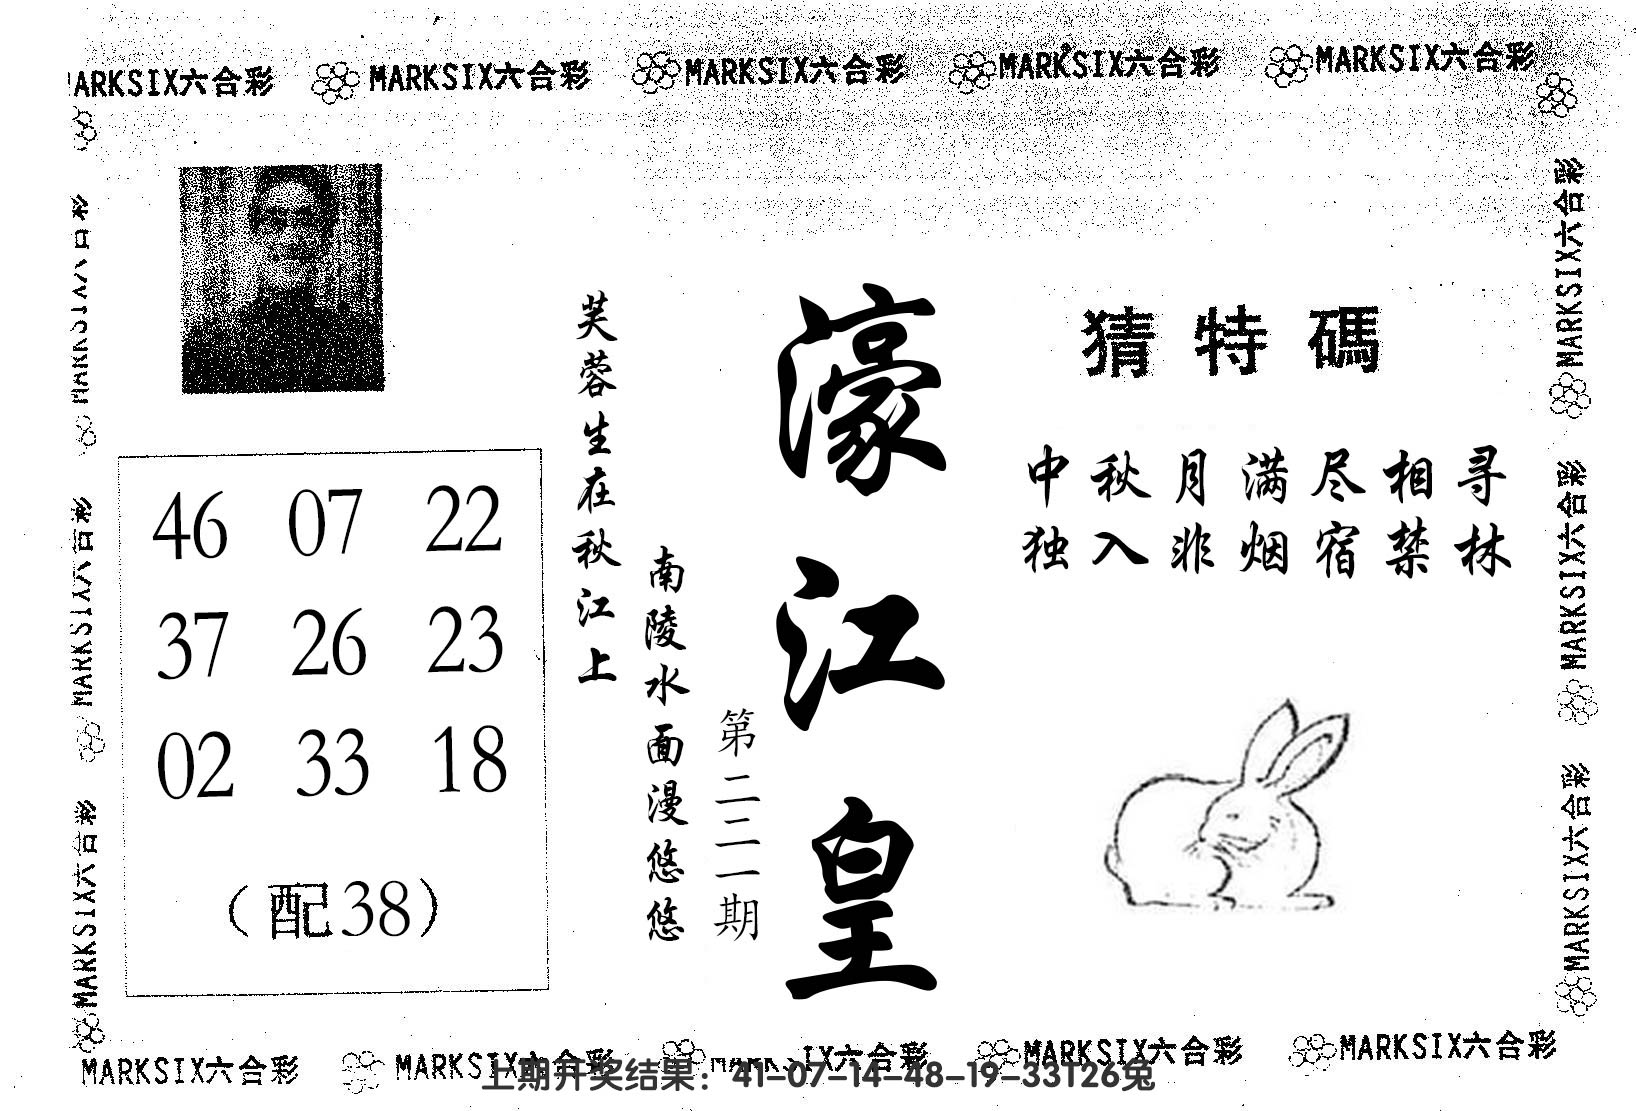 MARKSIX六合彩 MARKSIX六合彩 MARKSIX六合彩 MARKSIX六合彩 MARKSIX六合彩
猜特碼
中秋月满尽相寻
独入非烟宿禁林
濠江皇
第二二一期
南陵水面漫悠悠
芙蓉生在秋江上
46 07 22
37 26 23
02 33 18
（配38）
MARKSIX六合彩
MARKSIX六合彩
MARKSIX六合彩
MARKSIX六合彩
MARKSIX六合彩
MARKSIX六合彩
MARKSIX六合彩 MARKSIX六合彩 MARKSIX六合彩 MARKSIX六合彩 MARKSIX六合彩
上期开奖结果：41-07-14-48-19-33T26兔